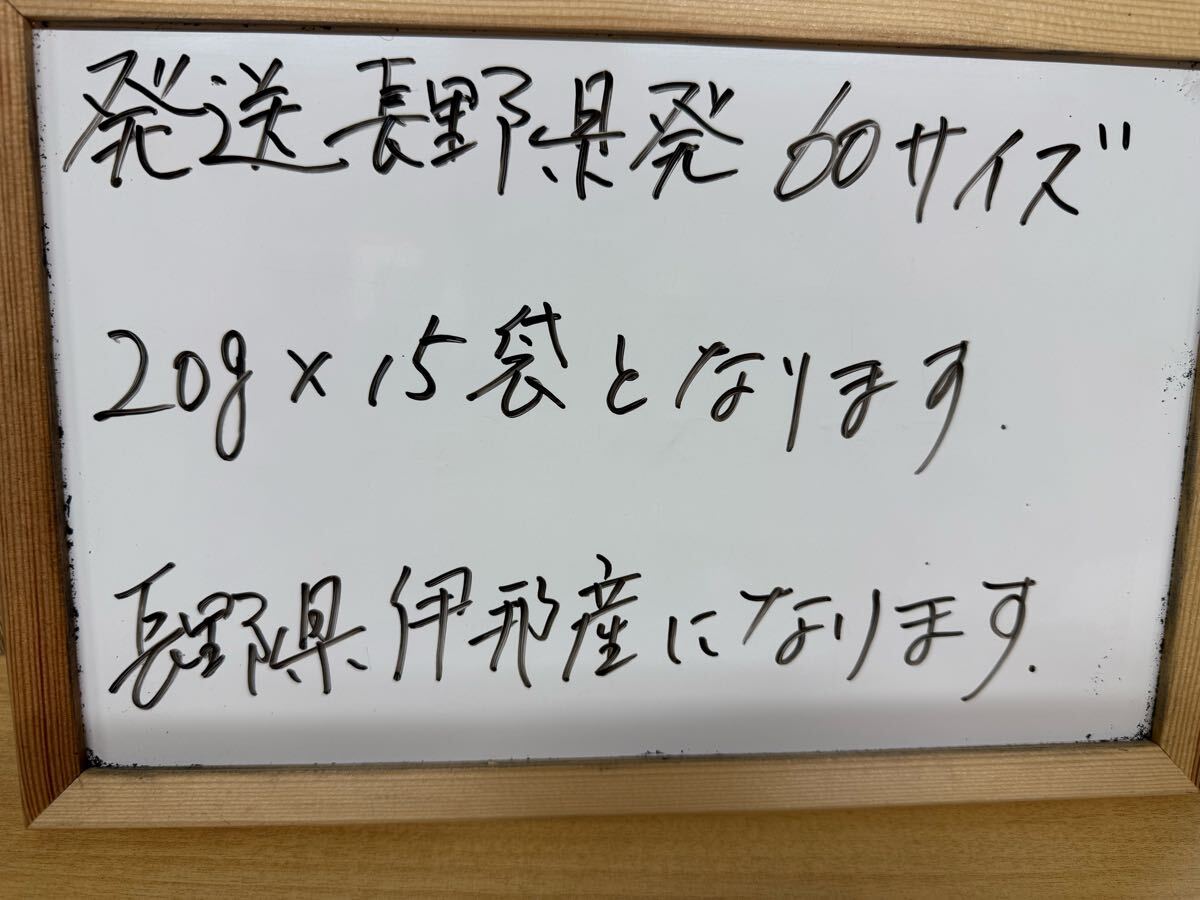 発送 長野県発 60サイズ
20g×15袋となります.
長野県伊那産になります.